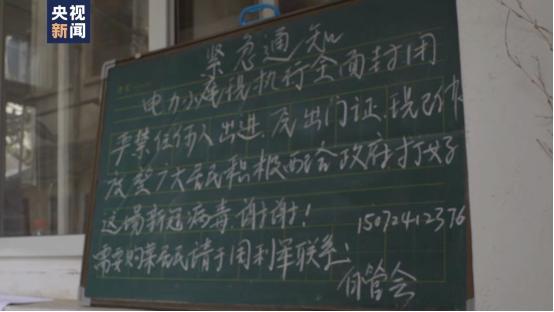 央视
新闻
紧急通知
电力小区现执行全面封闭
严禁任何人出进.出门证.现已作
废.望广大居民积极配合政府打好
这场新冠病毒.谢谢!
15072412376
需要购菜居民请于周利军联系:
自管会